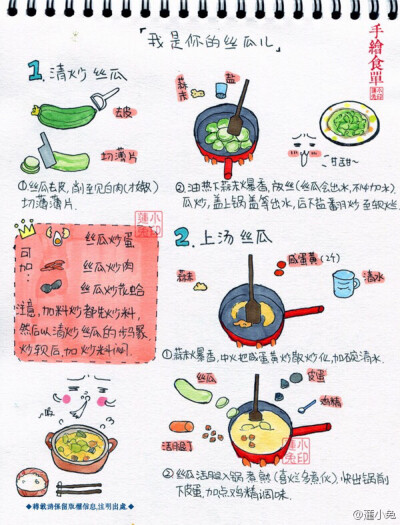 「我是你的丝瓜儿」
手繪食單
1. 清炒丝瓜
去皮
切薄片
①丝瓜去皮,刮至见白肉(才嫩)
切薄薄片.
蒜末
盐
甘甜~
②油热下蒜末火暴香,放丝(丝瓜会出水,不必加水).
瓜炒,盖上锅盖等出水,后下盐翻炒至软烂.
可加:
丝瓜炒蛋
丝瓜炒肉
丝瓜炒花蛤
注意,加料炒都先炒料,
然后以清炒丝瓜的步骤
炒软后,加炒料闷.
2. 上汤丝瓜
蒜末
咸蛋黄(2个)
清水
①蒜末火暴香,中火把咸蛋黄炒散炒化,加碗清水.
丝瓜
皮蛋
鸡精
②丝瓜
入锅煮熟
快出锅前
下皮蛋,加点鸡精调味.
◆轉載請保留版權信息,注明出處◆
@蓮小兔